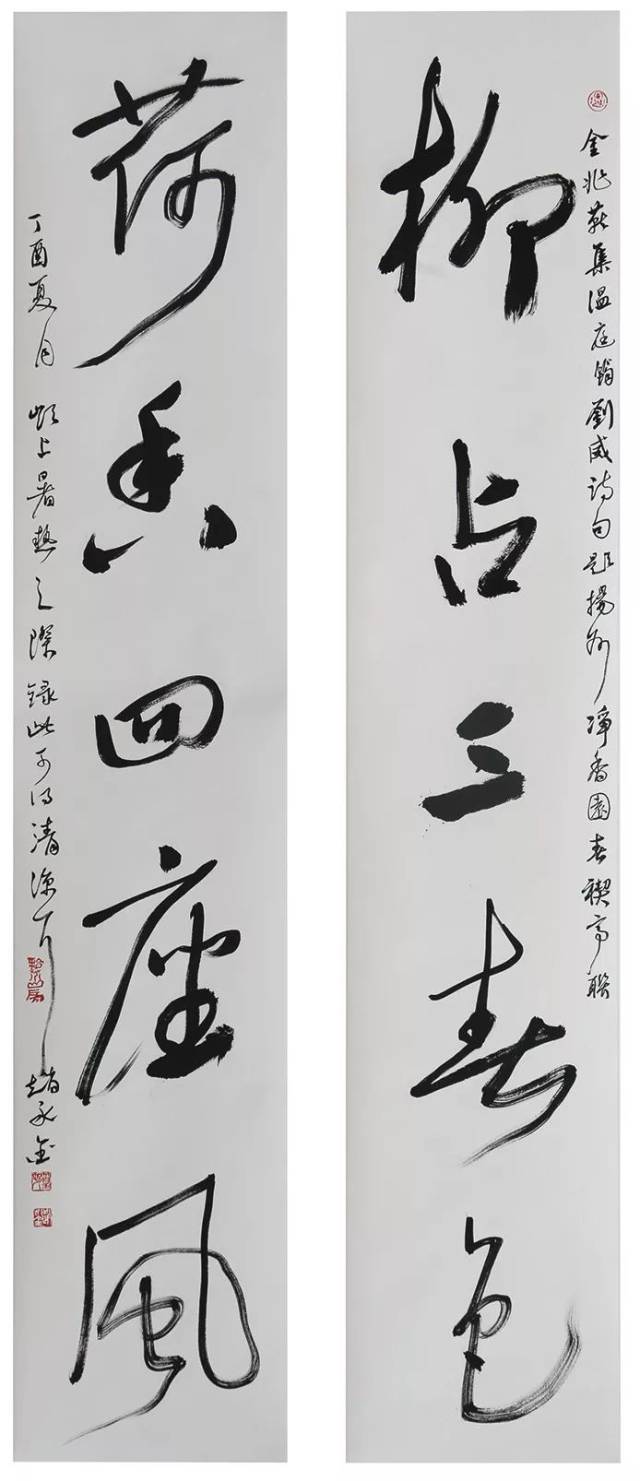 金兆燕集温庭筠劉威詩句題揚州淨香園春禊亭聯
柳占三春色
荷香四座風
丁酉夏月 頻上暑熱之際 録此可得清凉耳
趙永金